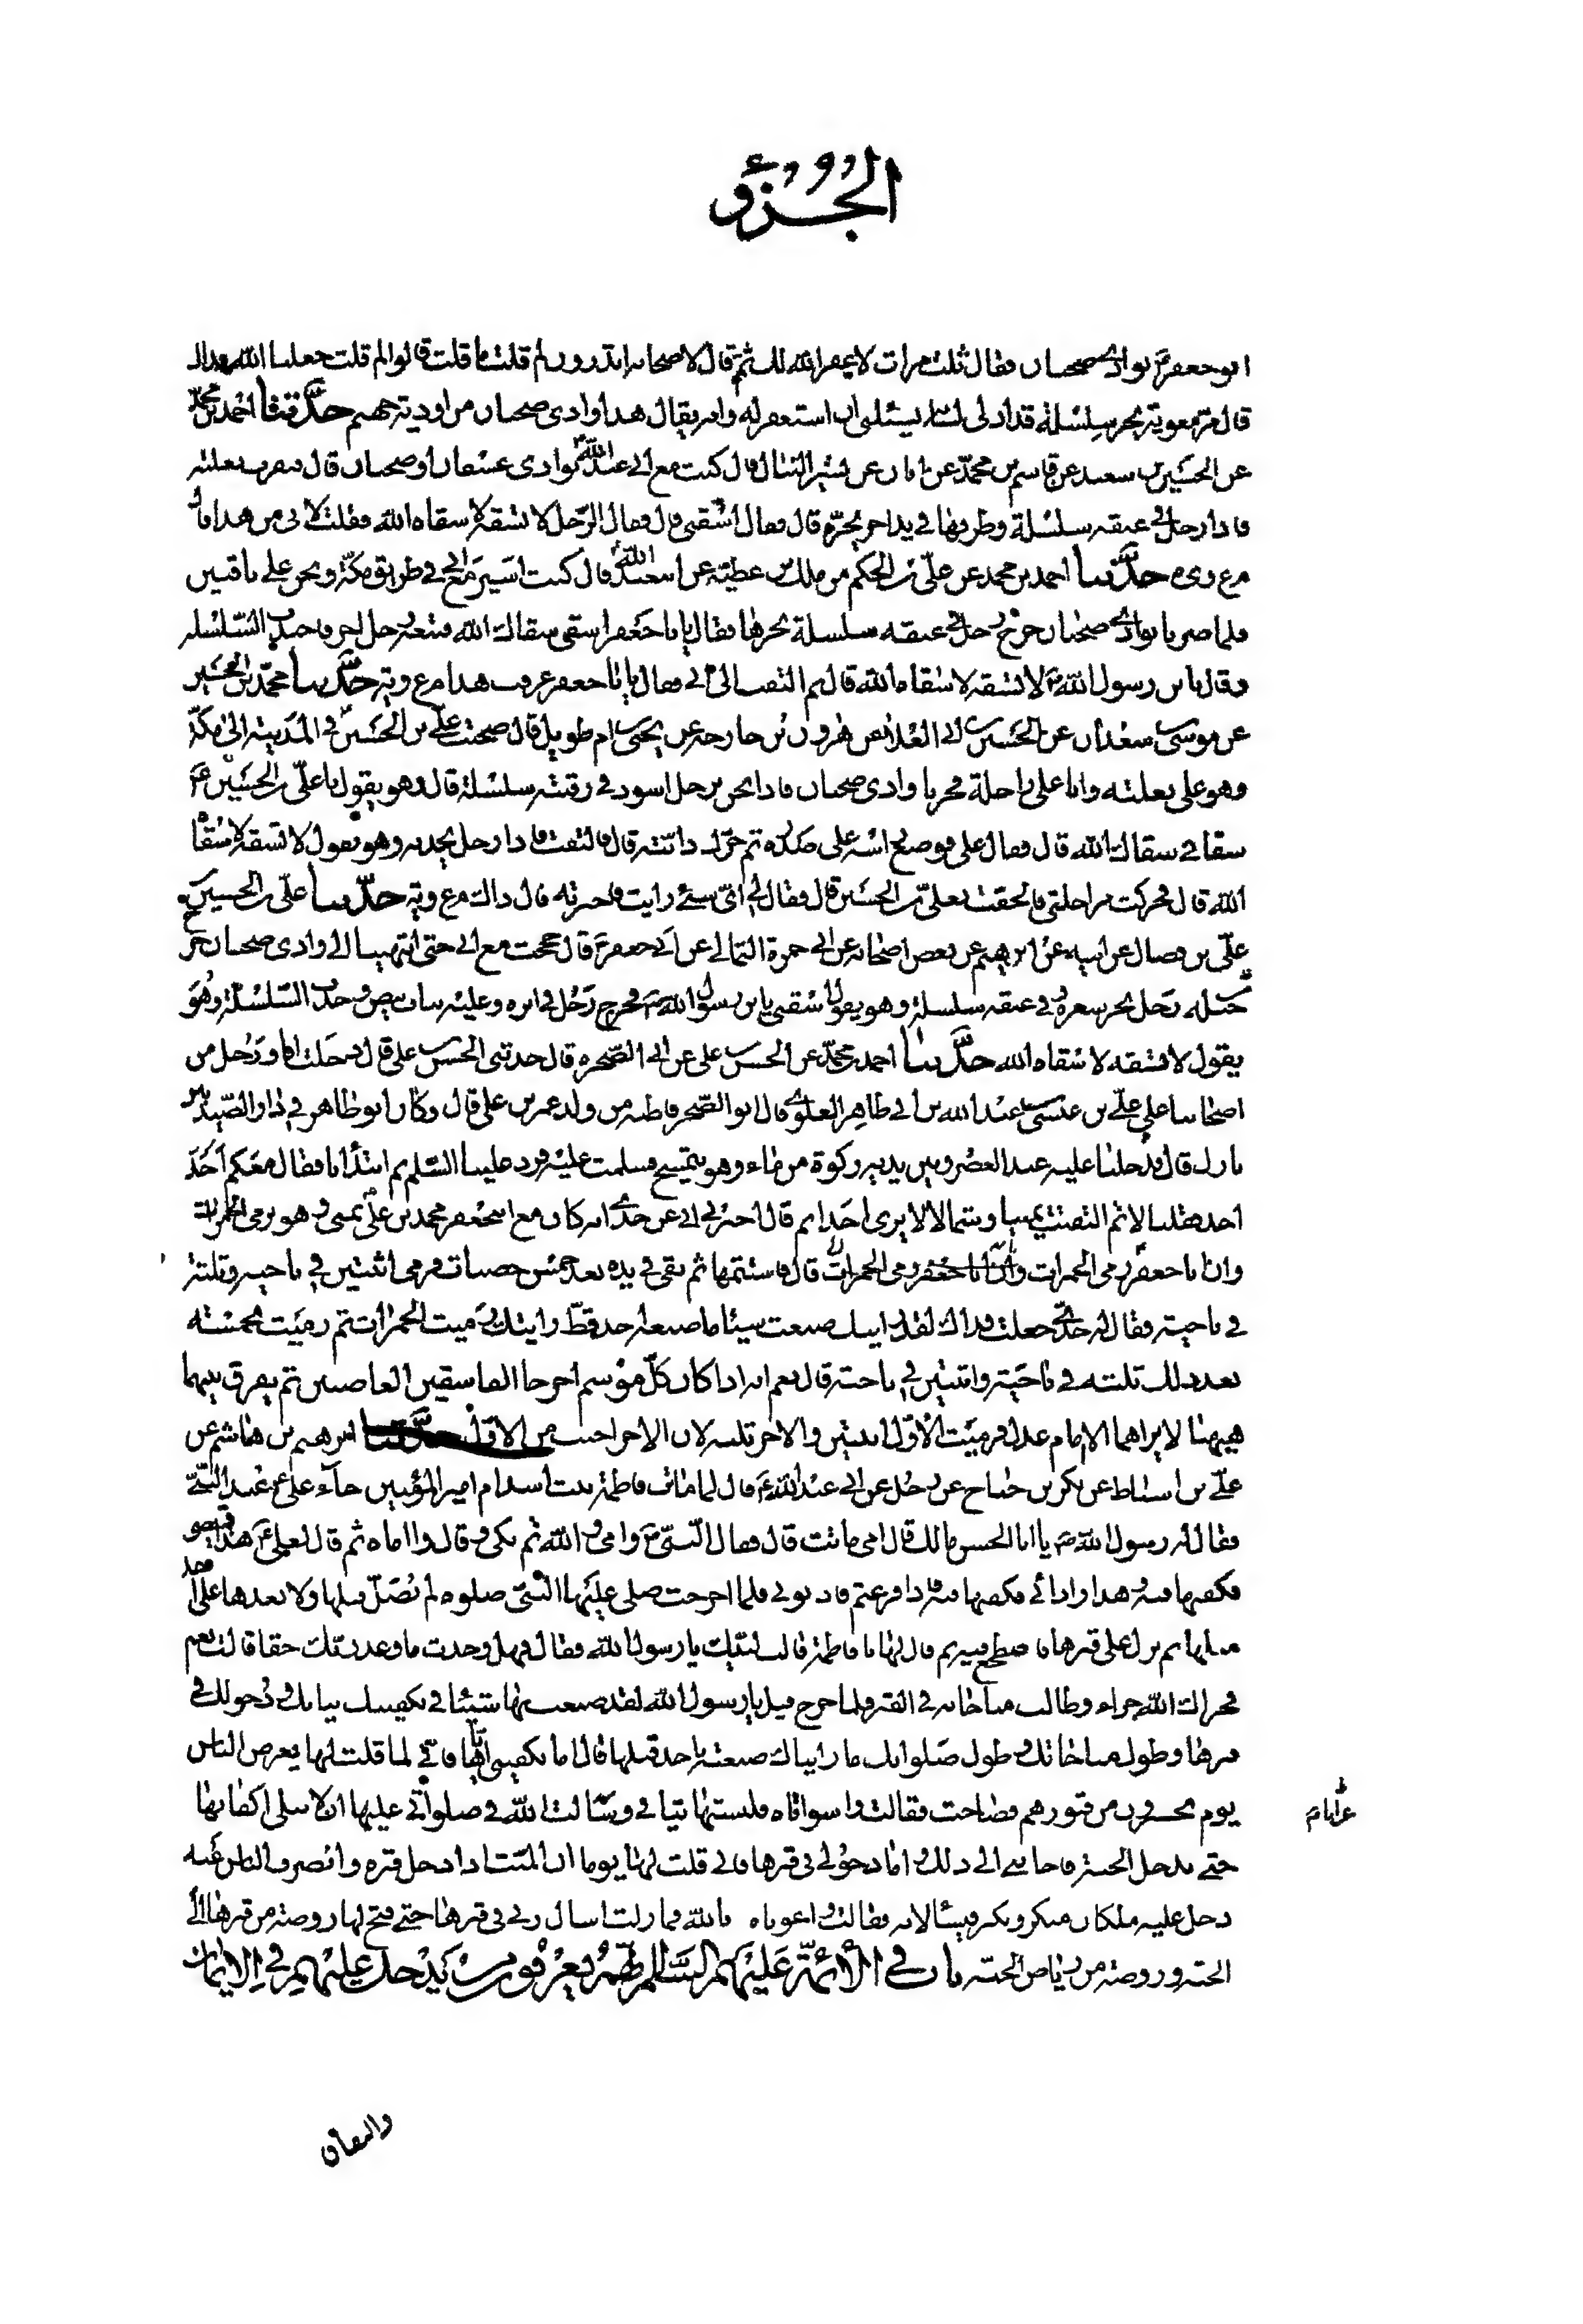 الجزؤ
ابو جعفر ع بوادى ضجنان فقال ثلث مرات لا غفر الله لك ثم قال لاصحابه اتدرون لم قلت ما قلت قالوا لم قلت جعلنا الله فداك
قال مر معوية يجر سلسلة قد ادلى لسانه يسئلنى ان استغفر له وانه يقال هذا وادى ضجنان من اودية جهنم حدثنا احمد بن محمد
عن الحسين بن سعيد عن قاسم بن محمد عن ابان عن بشير النبال قال كنت مع ابى عبد الله ع بوادى عسفان او ضجنان قال فنفرت بغلته
فاذا رجل فى عنقه سلسلة وطرفها فى يد اخر يجره قال فقال اسقنى قال فقال الرجل لا تسقه لا سقاه الله فقلت لابى من هذا فقال
معوية حدثنا احمد بن محمد عن على بن الحكم عن ملك بن عطية عن ابى عبد الله ع قال كنت اسير مع ابى فى طريق مكة ونحن على ناقتين
فلما صرنا بوادى ضجنان خرج رجل فى عنقه سلسلة يجرها فقال يابا جعفر اسقنى سقاك الله فتبعه رجل اخر فاجتذب السلسلة
وقال يا بن رسول الله ص لا تسقه لا سقاه الله قال ثم التفت الى ابى فقال يابا جعفر عرفت هذا معوية حدثنا محمد بن الحسين
عن موسى بن سعدان عن الحسين بن ابى العلا عن هرون بن خارجة عن يحيى بن ام طويل قال صحبت على بن الحسين ع فى المدينة الى مكة
وهو على بغلته وانا على راحلة فجزنا وادى ضجنان فاذا نحن برجل اسود فى رقبته سلسلة قال وهو يقول يا على بن الحسين ع
سقانى سقاك الله قال فقال على فوضع راسه على صدره ثم حرك دابته قال فالتفت فاذا رجل يجذبه وهو يقول لا تسقه لا سقاه
الله قال فحركت راحلتى فالحقت بعلى بن الحسين قال فقال لى اى شئ رايت فاخبرته قال ذاك معوية حدثنا على بن الحسين بن
على بن فضال عن ابيه عن ابرهيم عن بعض اصحابه عن ابى حمزة الثمالى عن ابى جعفر ع قال حججت مع ابى حتى انتهينا الى وادى ضجنان خرج
رجل يجر شعره فى عنقه سلسلة وهو يقول اسقنى يا بن رسول الله ص فخرج رجل فى اثره وعليه ثياب بيض فجذب السلسلة وهو
يقول لا تسقه لا سقاه الله حدثنا احمد بن محمد عن الحسن بن على عن ابى الصخرة قال حدثنى الحسن بن على قال دخلت انا ورجل من
اصحابنا على على بن عيسى بن عبد الله بن ابى طاهر العلوى قال ابو الصخر فاظنه من ولد عمر بن على قال وكان ابو طاهر فى دار الصيديين
نازل قال فدخلنا عليه عند العصر وبين يديه ركوة من ماء وهو يتمسح فسلمت عليه فرد علينا السلم ثم ابتدانا فقال معكم احد
احد فقلنا لا ثم التفت يمينا وشمالا لا يرى احدا ثم قال اخبرنى ابى عن جدى انه كان مع ابى جعفر محمد بن على ع بمنى وهو يرمى الجمرات
وان ابا جعفر ع رمى الجمرات قال فاستتمها ثم بقى فى يده بعد خمس حصيات فرمى اثنتين فى ناحية وثلثة
فى ناحية فقال له جدى جعلت فداك لقد رايتك صنعت شيئا ما صنعه احد قط رايتك رميت الجمرات ثم رميت بخمسة
بعد ذلك ثلثة فى ناحية واثنتين فى ناحية قال نعم انه اذا كان كل موسم اخرجا الفاسقين الغاصبين ثم يفرق بينهما
هيهنا لا يراهما الا امام عدل فرميت الاول اثنتين والاخر ثلثة لان الاخر اخبث من الاول حدثنا ابرهيم بن هاشم عن
على بن اسباط عن بكر بن جناح عن رجل عن ابى عبد الله ع قال لما ماتت فاطمة بنت اسد ام امير المؤمنين جاء على ع عند النبى
فقال له رسول الله ص يا ابا الحسن مالك قال امى ماتت قال فقال النبى ص وامى والله ثم بكى وقال وا اماه ثم قال لعلى ع هذا قميصى
فكفنها فيه وهذا ردائى فكفنها فيه فاذا فرغتم فاذنونى فلما اخرجت صلى عليها النبى صلوة لم يصل قبلها ولا بعدها على احد
مثلها ثم نزل على قبرها فاضطجع فيه ثم قال لها يا فاطمة قالت لبيك يا رسول الله فقال فهل وجدت ما وعد ربك حقا قالت نعم
فجزاك الله جزاء وطالت مناجاته فى القبر فلما خرج قيل يا رسول الله لقد صنعت بها شيئا فى تكفينك ثيابك ودخولك فى
قبرها وطول مناجاتك وطول صلواتك ما رايناك صنعته باحد قبلها قال اما تكفينى اياها فانى لما قلت لها يعرض الناس
يوم يحشرون من قبورهم فصاحت فقالت وا سواتاه فلبستها ثيابى وسالت الله فى صلواتى عليها ان لا يبلى اكفانها
عراىام
حتى تدخل الجنة فاجابنى الى ذلك واما دخولى فى قبرها فانى قلت لها يوما ان الميت اذا دخل قبره وانصرف الناس عنه
دخل عليه ملكان منكر ونكير فيسئلانه فقالت واغوثاه بالله فما زلت اسال ربى فى قبرها حتى فتح لها روضة من قبرها الى
الجنة وروضة من رياض الجنة باب فى الائمة عليهم السلام انهم يعرفون من يدخل عليهم فى الايمان
والنفاق